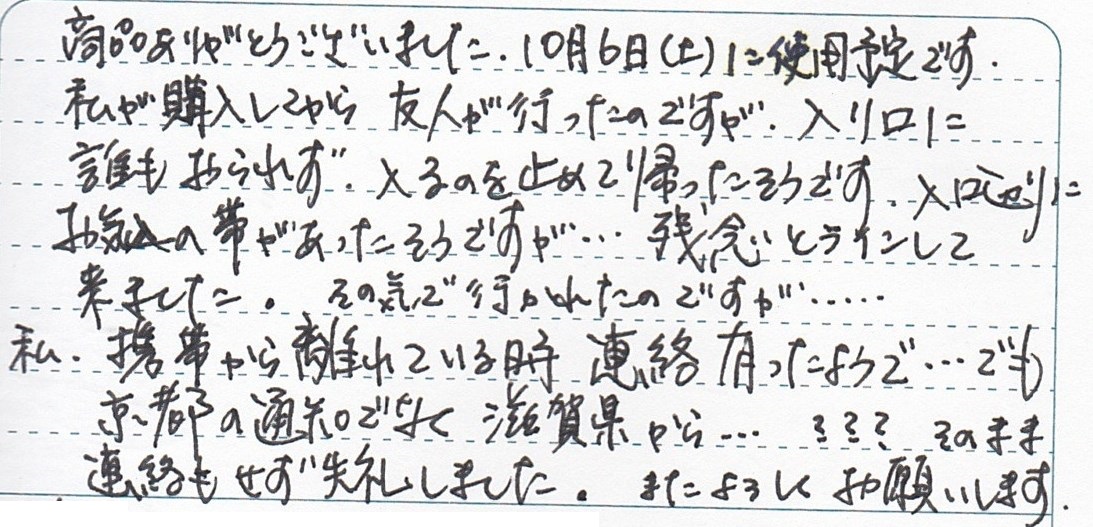 商品ありがとうございました. 10月6日(土)に使用予定です.
私が購入してから 友人が行ったのですが. 入り口に
誰もおられず. 入るのを止めて帰ったそうです. 入口辺りに
お気入の帯があったそうですが… 残念とラインして
来ました。 その気で行かれたのですが……
私. 携帯から離れている時 連絡有ったようで…でも
京都の通知でなく 滋賀県から… ??? そのまま
連絡もせず失礼しました。 またよろしくお願いします.